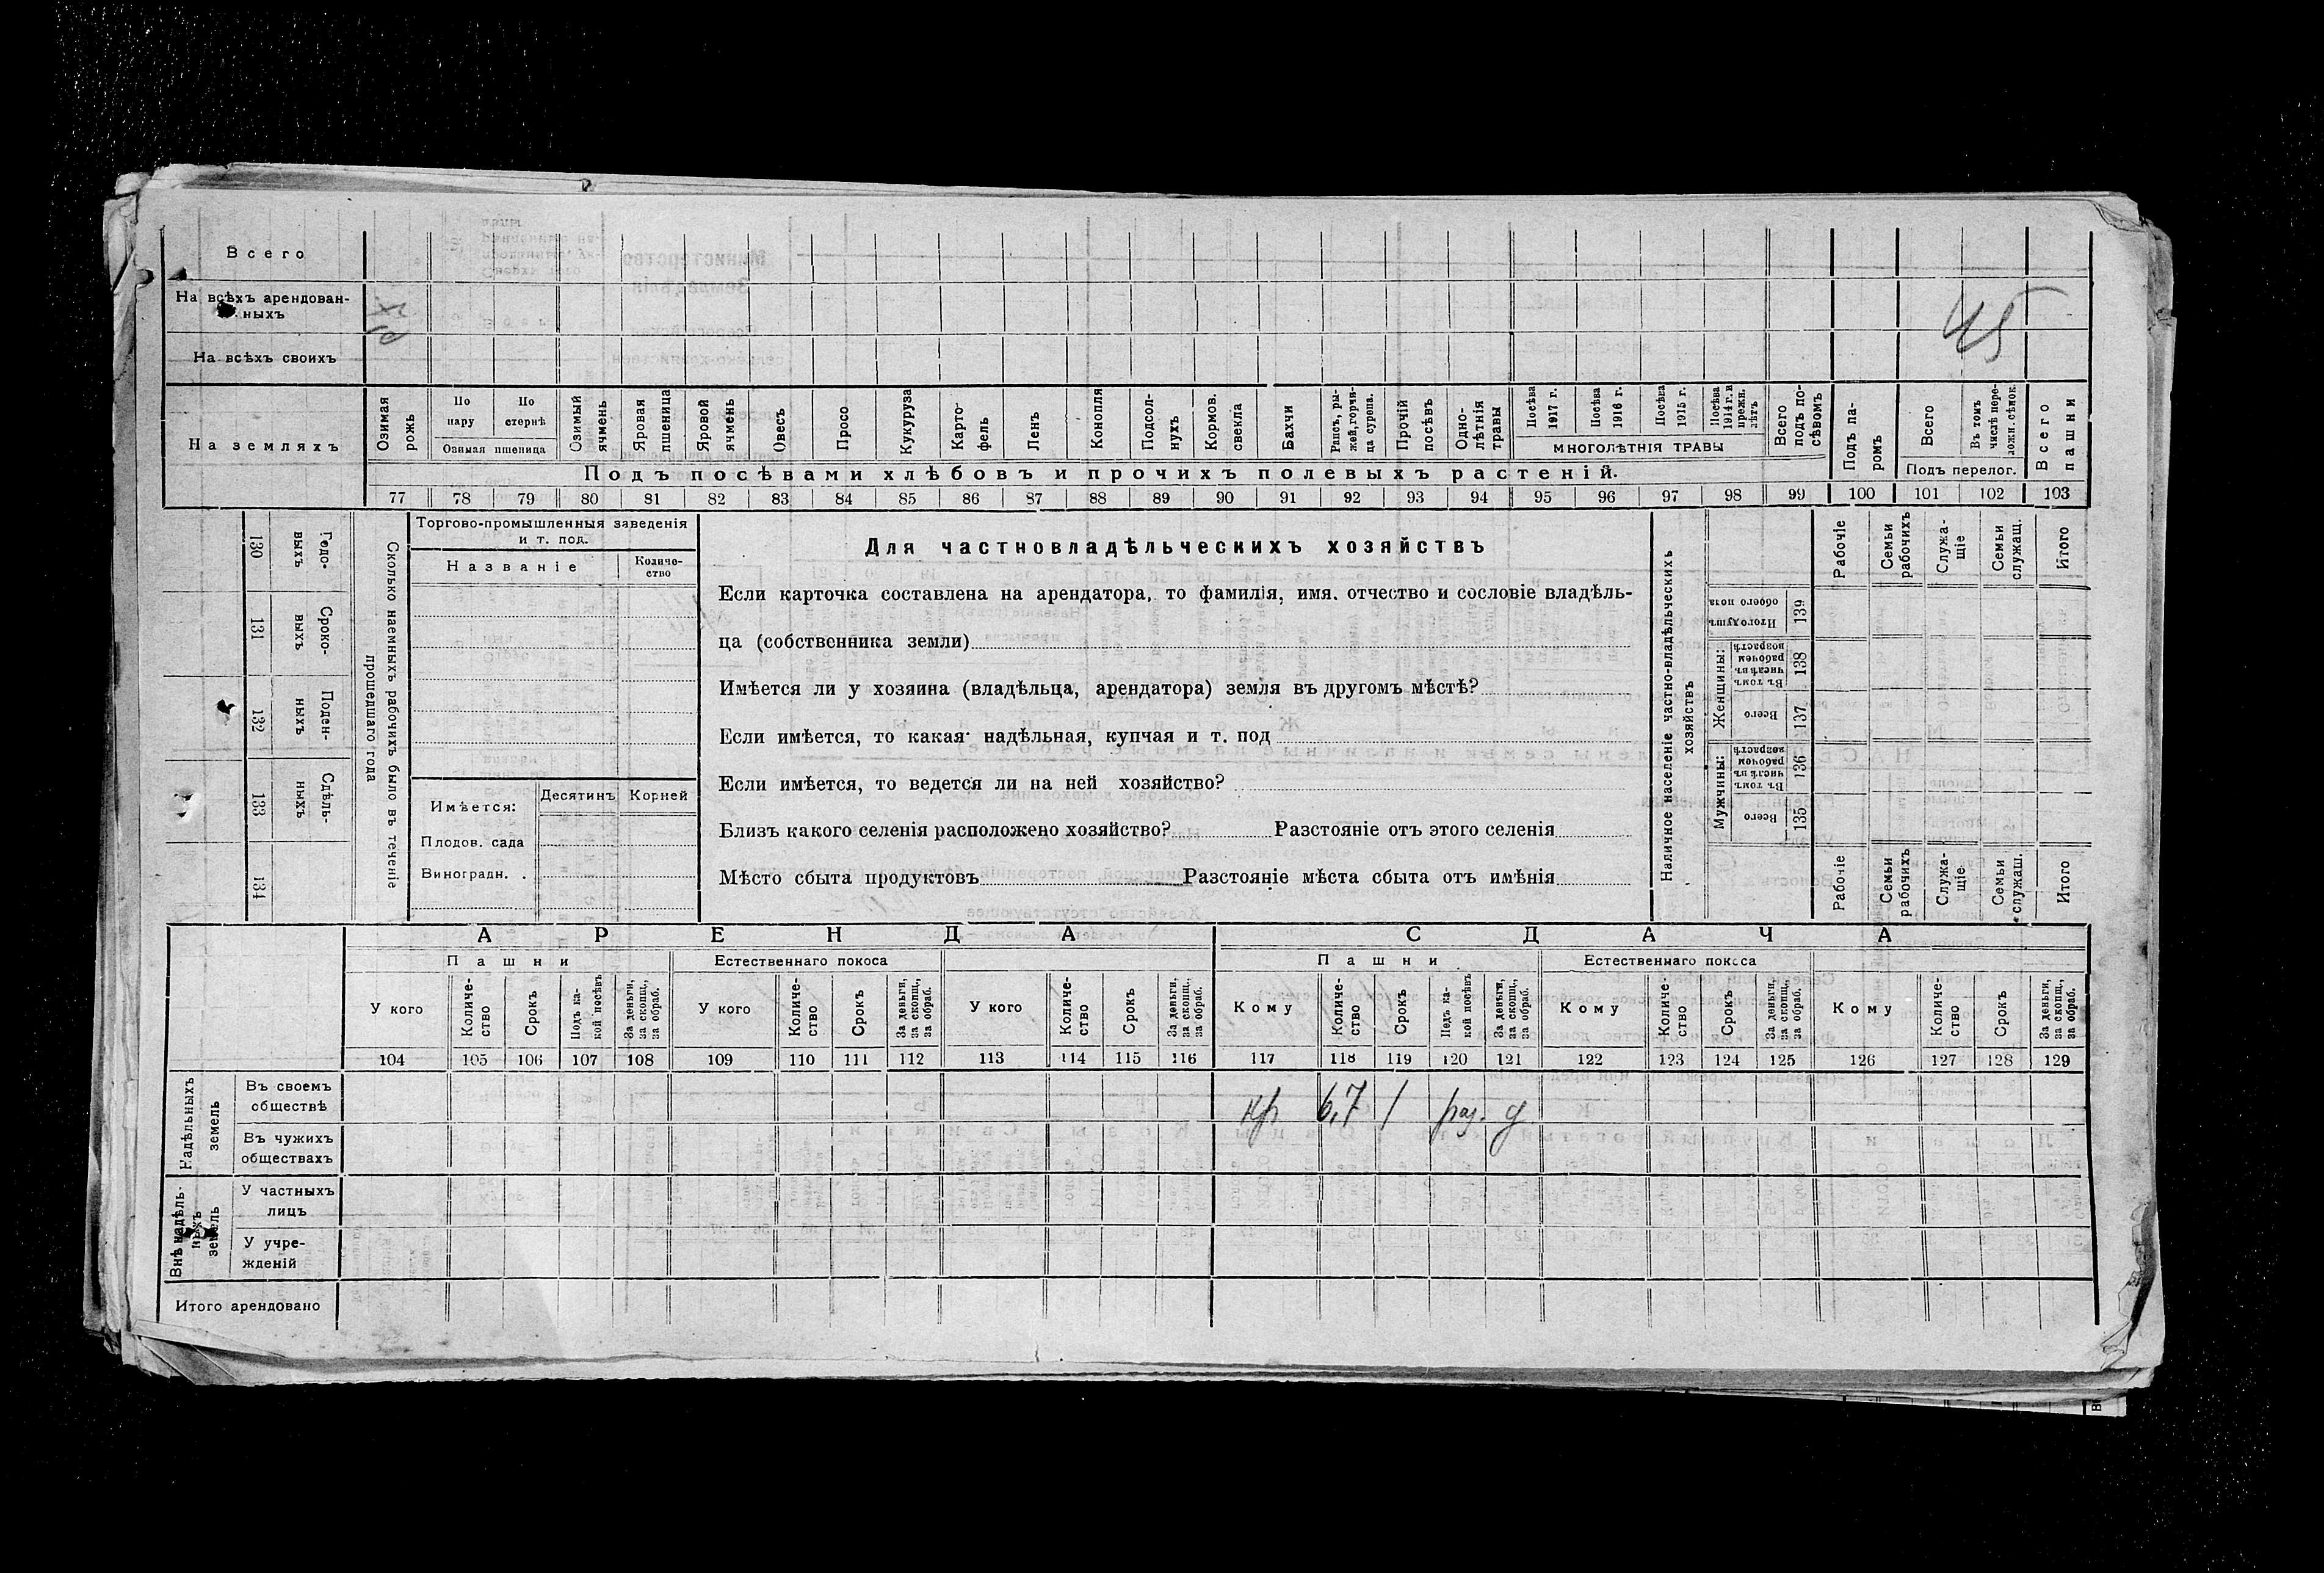 Всего
На всѣхъ арендованныхъ
45
На всѣхъ своихъ
На земляхъ
Озимая рожь
По пару
По стернѣ
Озимая пшеница
Озимый ячмень
Яровая пшеница
Яровой ячмень
Овесъ
Просо
Кукуруза
Картофель
Ленъ
Конопля
Подсолнухъ
Кормов. свекла
Бахчи
Рапсъ, рыжей, горчица сурепа.
Прочій посѣвъ
Однолѣтнія травы
Посѣва 1917 г.
Посѣва 1916 г.
Посѣва 1915 г.
Посѣва 1914 г. и прежн. лѣтъ
МНОГОЛѢТНІЯ ТРАВЫ
Всего подъ посѣвомъ
Подъ паромъ
Всего
Въ томъ числѣ переложн. сѣнок.
Подъ перелог.
Всего пашни
Подъ посѣвами хлѣбовъ и прочихъ полевыхъ растеній.
77 78 79 80 81 82 83 84 85 86 87 88 89 90 91 92 93 94 95 96 97 98 99 100 101 102 103
130 Годовыхъ
131 Сроковыхъ
132 Поденныхъ
133 Сдѣльныхъ
134
Сколько наемныхъ рабочихъ было въ теченіе прошедшаго года
Торгово-промышленныя заведенія
и т. под.
Названіе
Количество
Имѣется:
Десятинъ
Корней
Плодов. сада
Виноградн.
Для частновладѣльческихъ хозяйствъ
Если карточка составлена на арендатора, то фамилія, имя, отчество и сословіе владѣль-
ца (собственника земли)
Имѣется ли у хозяина (владѣльца, арендатора) земля въ другомъ мѣстѣ?
Если имѣется, то какая: надѣльная, купчая и т. под
Если имѣется, то ведется ли на ней хозяйство?
Близъ какого селенія расположено хозяйство? Разстояніе отъ этого селенія
Мѣсто сбыта продуктовъ Разстояніе мѣста сбыта отъ имѣнія
Наличное населеніе частно-владѣльческихъ хозяйствъ
Рабочіе
Семьи рабочихъ
Служащіе
Семьи служащ.
Итого
Итого душъ обоего пола 139
Женщины:
Въ томъ числѣ въ рабочемъ возрастѣ 138
Всего 137
Мужчины:
Въ томъ числѣ въ рабочемъ возрастѣ 136
Всего 135
Рабочіе
Семьи рабочихъ
Служащіе
Семьи служащ.
Итого
АРЕНДА
СДАЧА
Пашни
Естественнаго покоса
Пашни
Естественнаго покоса
У кого
Количество
Срокъ
Подъ какой посѣвъ
За деньги, за скопщ., за обраб.
У кого
Количество
Срокъ
За деньги, за скопщ., за обраб.
У кого
Количество
Срокъ
За деньги, за скопщ., за обраб.
Кому
Количество
Срокъ
Подъ какой посѣвъ
За деньги, за скопщ., за обраб.
Кому
Количество
Срокъ
За деньги, за скопщ., за обраб.
Кому
Количество
Срокъ
За деньги, за скопщ., за обраб.
104 105 106 107 108 109 110 111 112 113 114 115 116 117 118 119 120 121 122 123 124 125 126 127 128 129
Надѣльныхъ земель
Въ своемъ обществѣ
кр 6,7 1 раз. д
Въ чужихъ обществахъ
Внѣ надѣльныхъ земель
У частныхъ лицъ
У учрежденій
Итого арендовано